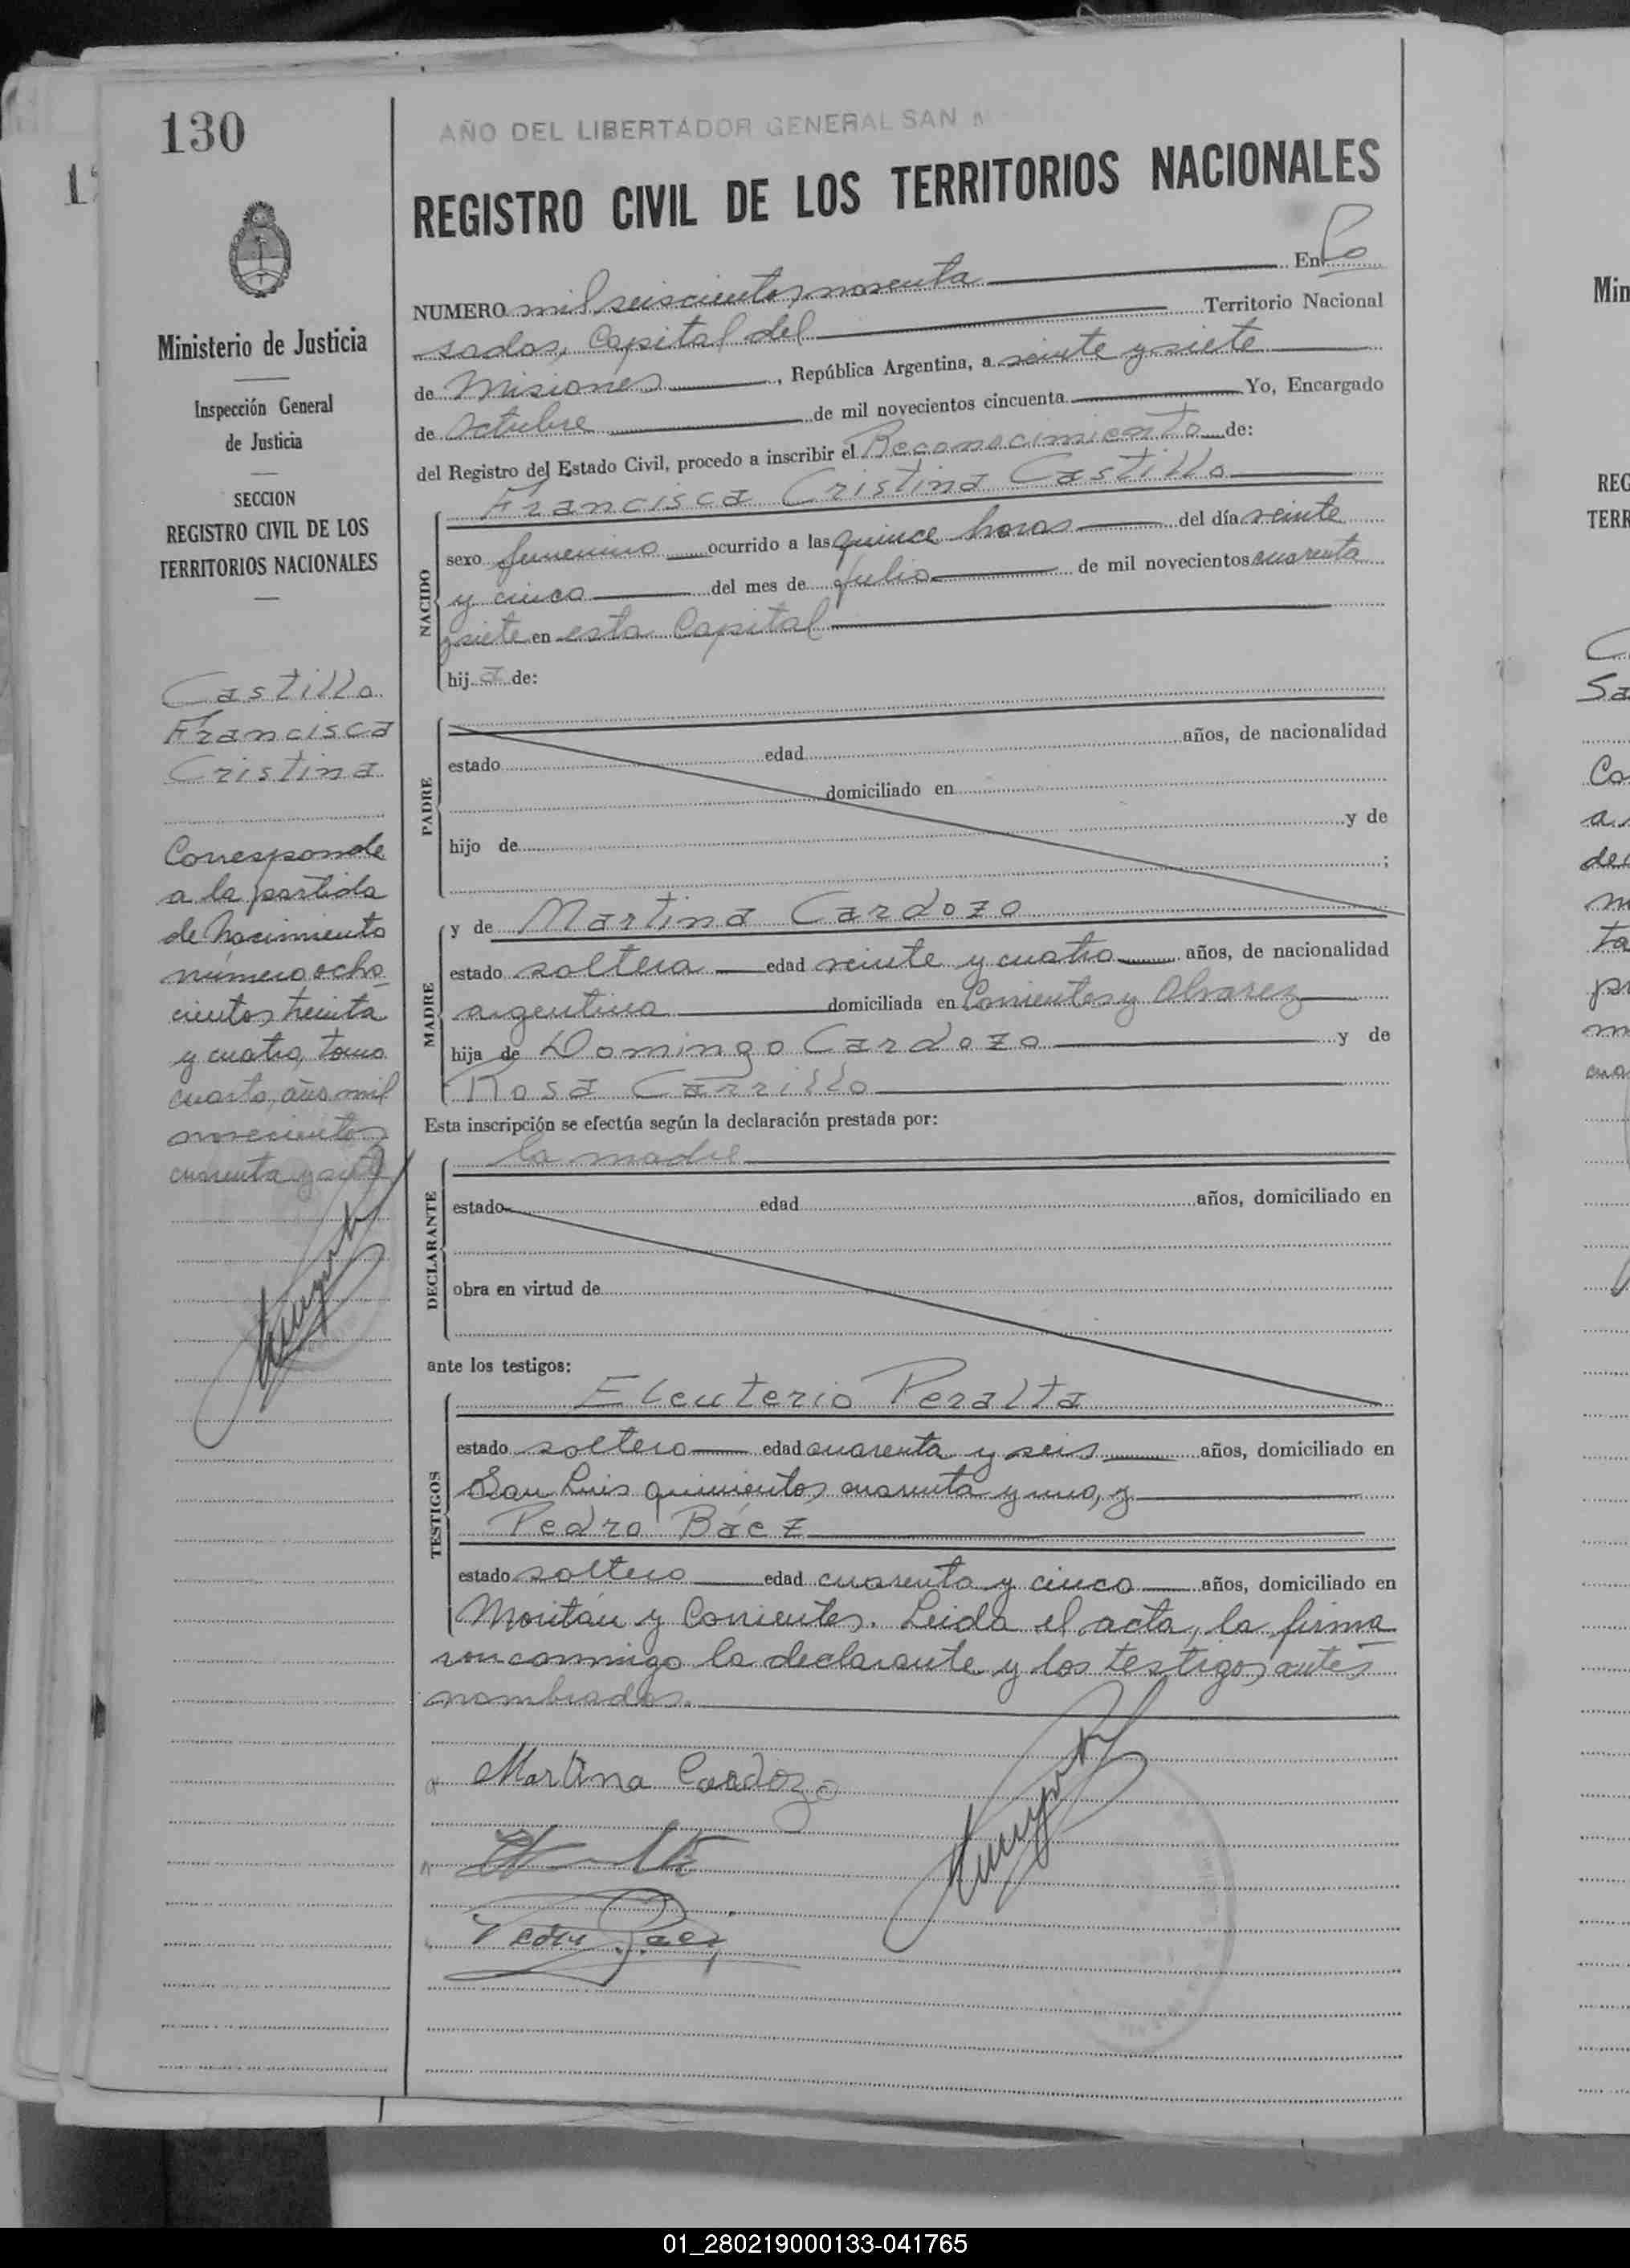 130
AÑO DEL LIBERTADOR GENERAL SAN M
REGISTRO CIVIL DE LOS TERRITORIOS NACIONALES
Ministerio de Justicia
Inspección General
de Justicia
SECCION
REGISTRO CIVIL DE LOS
TERRITORIOS NACIONALES
Castillo
Francisca
Cristina
Corresponde
a la partida
de nacimiento
número ocho
cientos treinta
y cuatro, tomo
cuarto, año mil
novecientos
cuarenta y siete
NUMERO mil seiscientos noventa En Po
sadas, Capital del Territorio Nacional
de Misiones, República Argentina, a veinte y siete
de Octubre de mil novecientos cincuenta Yo, Encargado
del Registro del Estado Civil, procedo a inscribir el Reconocimiento de:
NACIDO
Francisca Cristina Castillo
sexo femenino ocurrido a las quince horas del día veinte
y cinco del mes de Julio de mil novecientos cuarenta
y siete en esta Capital
hija de:
PADRE
estado edad años, de nacionalidad
domiciliado en
hijo de y de
;
MADRE
y de Martina Cardozo
estado soltera edad veinte y cuatro años, de nacionalidad
argentina domiciliada en Corrientes y Alvarez
hija de Domingo Cardozo y de
Rosa Carrillo
Esta inscripción se efectúa según la declaración prestada por:
DECLARANTE
la madre
estado edad años, domiciliado en
obra en virtud de
ante los testigos:
TESTIGOS
Eleuterio Peralta
estado soltero edad cuarenta y seis años, domiciliado en
San Luis quinientos cuarenta y uno, y
Pedro Báez
estado soltero edad cuarenta y cinco años, domiciliado en
y Corrientes. Leida el acta, la firma
ron conmigo la declarante y los testigos antes
nombrados.
Martina Cardozo
Pedro Baez
01_280219000133-041765